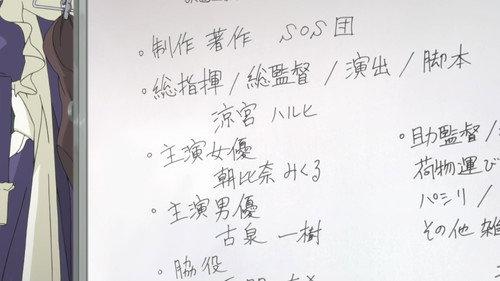 ・制作著作 SOS団
・総指揮/総監督/演出/脚本
涼宮ハルヒ
・主演女優
朝比奈みくる
・主演男優
古泉一樹
・脇役
・助監督/
荷物運び
パシリ/
その他 雑